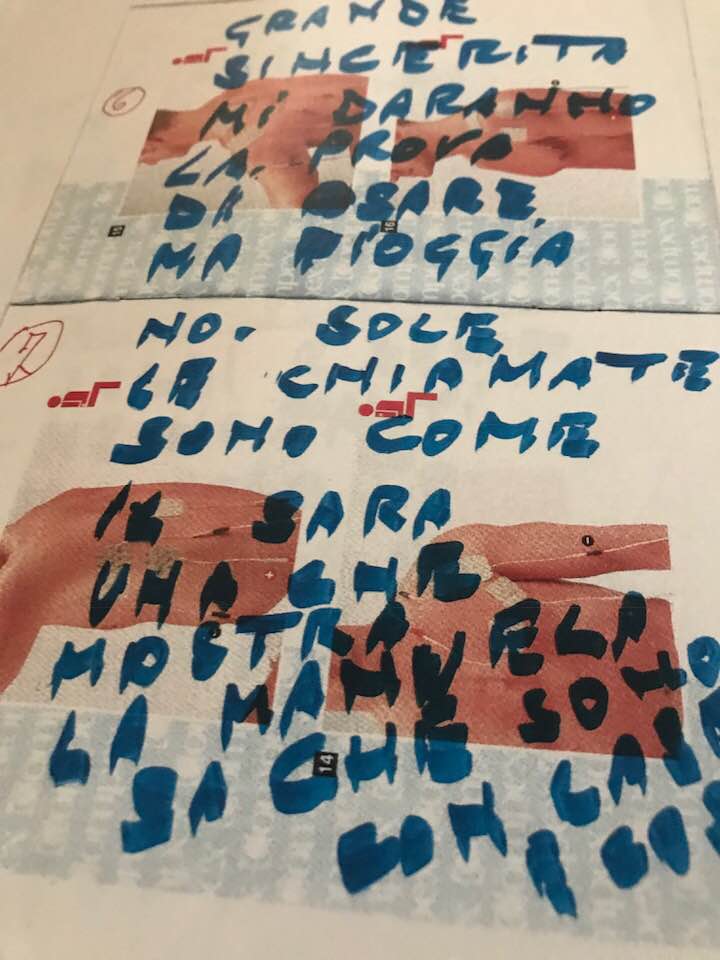 GRANDE
SINCERITA
6
MI DARANNO
LA. PROVA
DA OSARE
15
16
MA PIOGGIA
7
NO. SOLE
LE CHIAMATE
SONO COME
IL SARA
UNA CHE
MOSTRA VELA
LA MAN SOTTO
14
SA CHE
CON